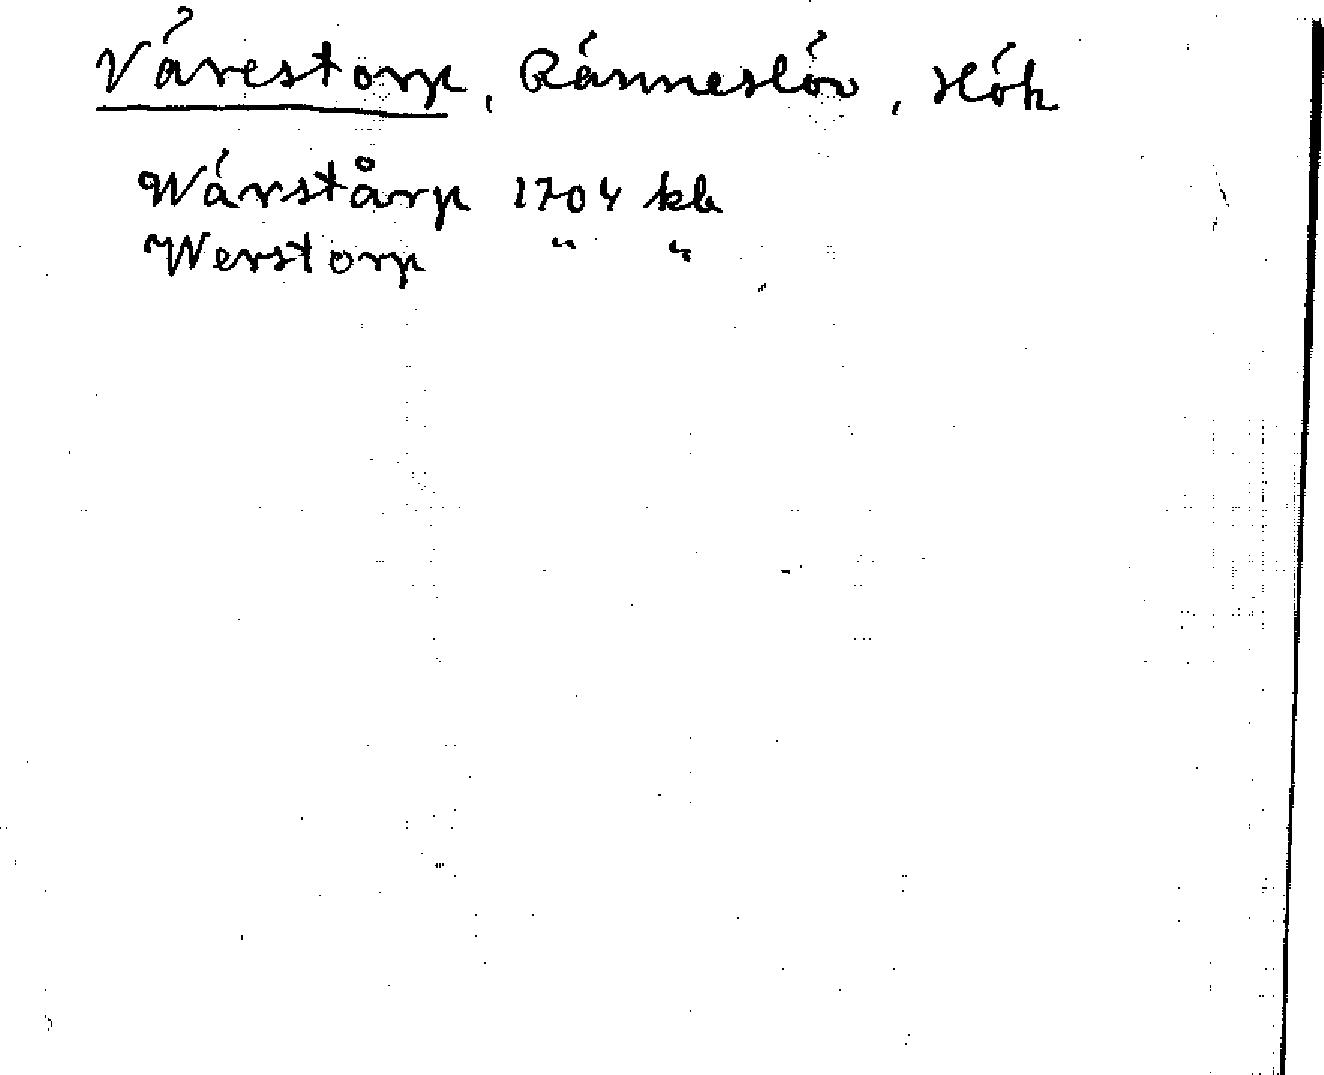 Värestorp, Ränneslöv, Hök
Wärstårp 1704 kb
Werstorp " "